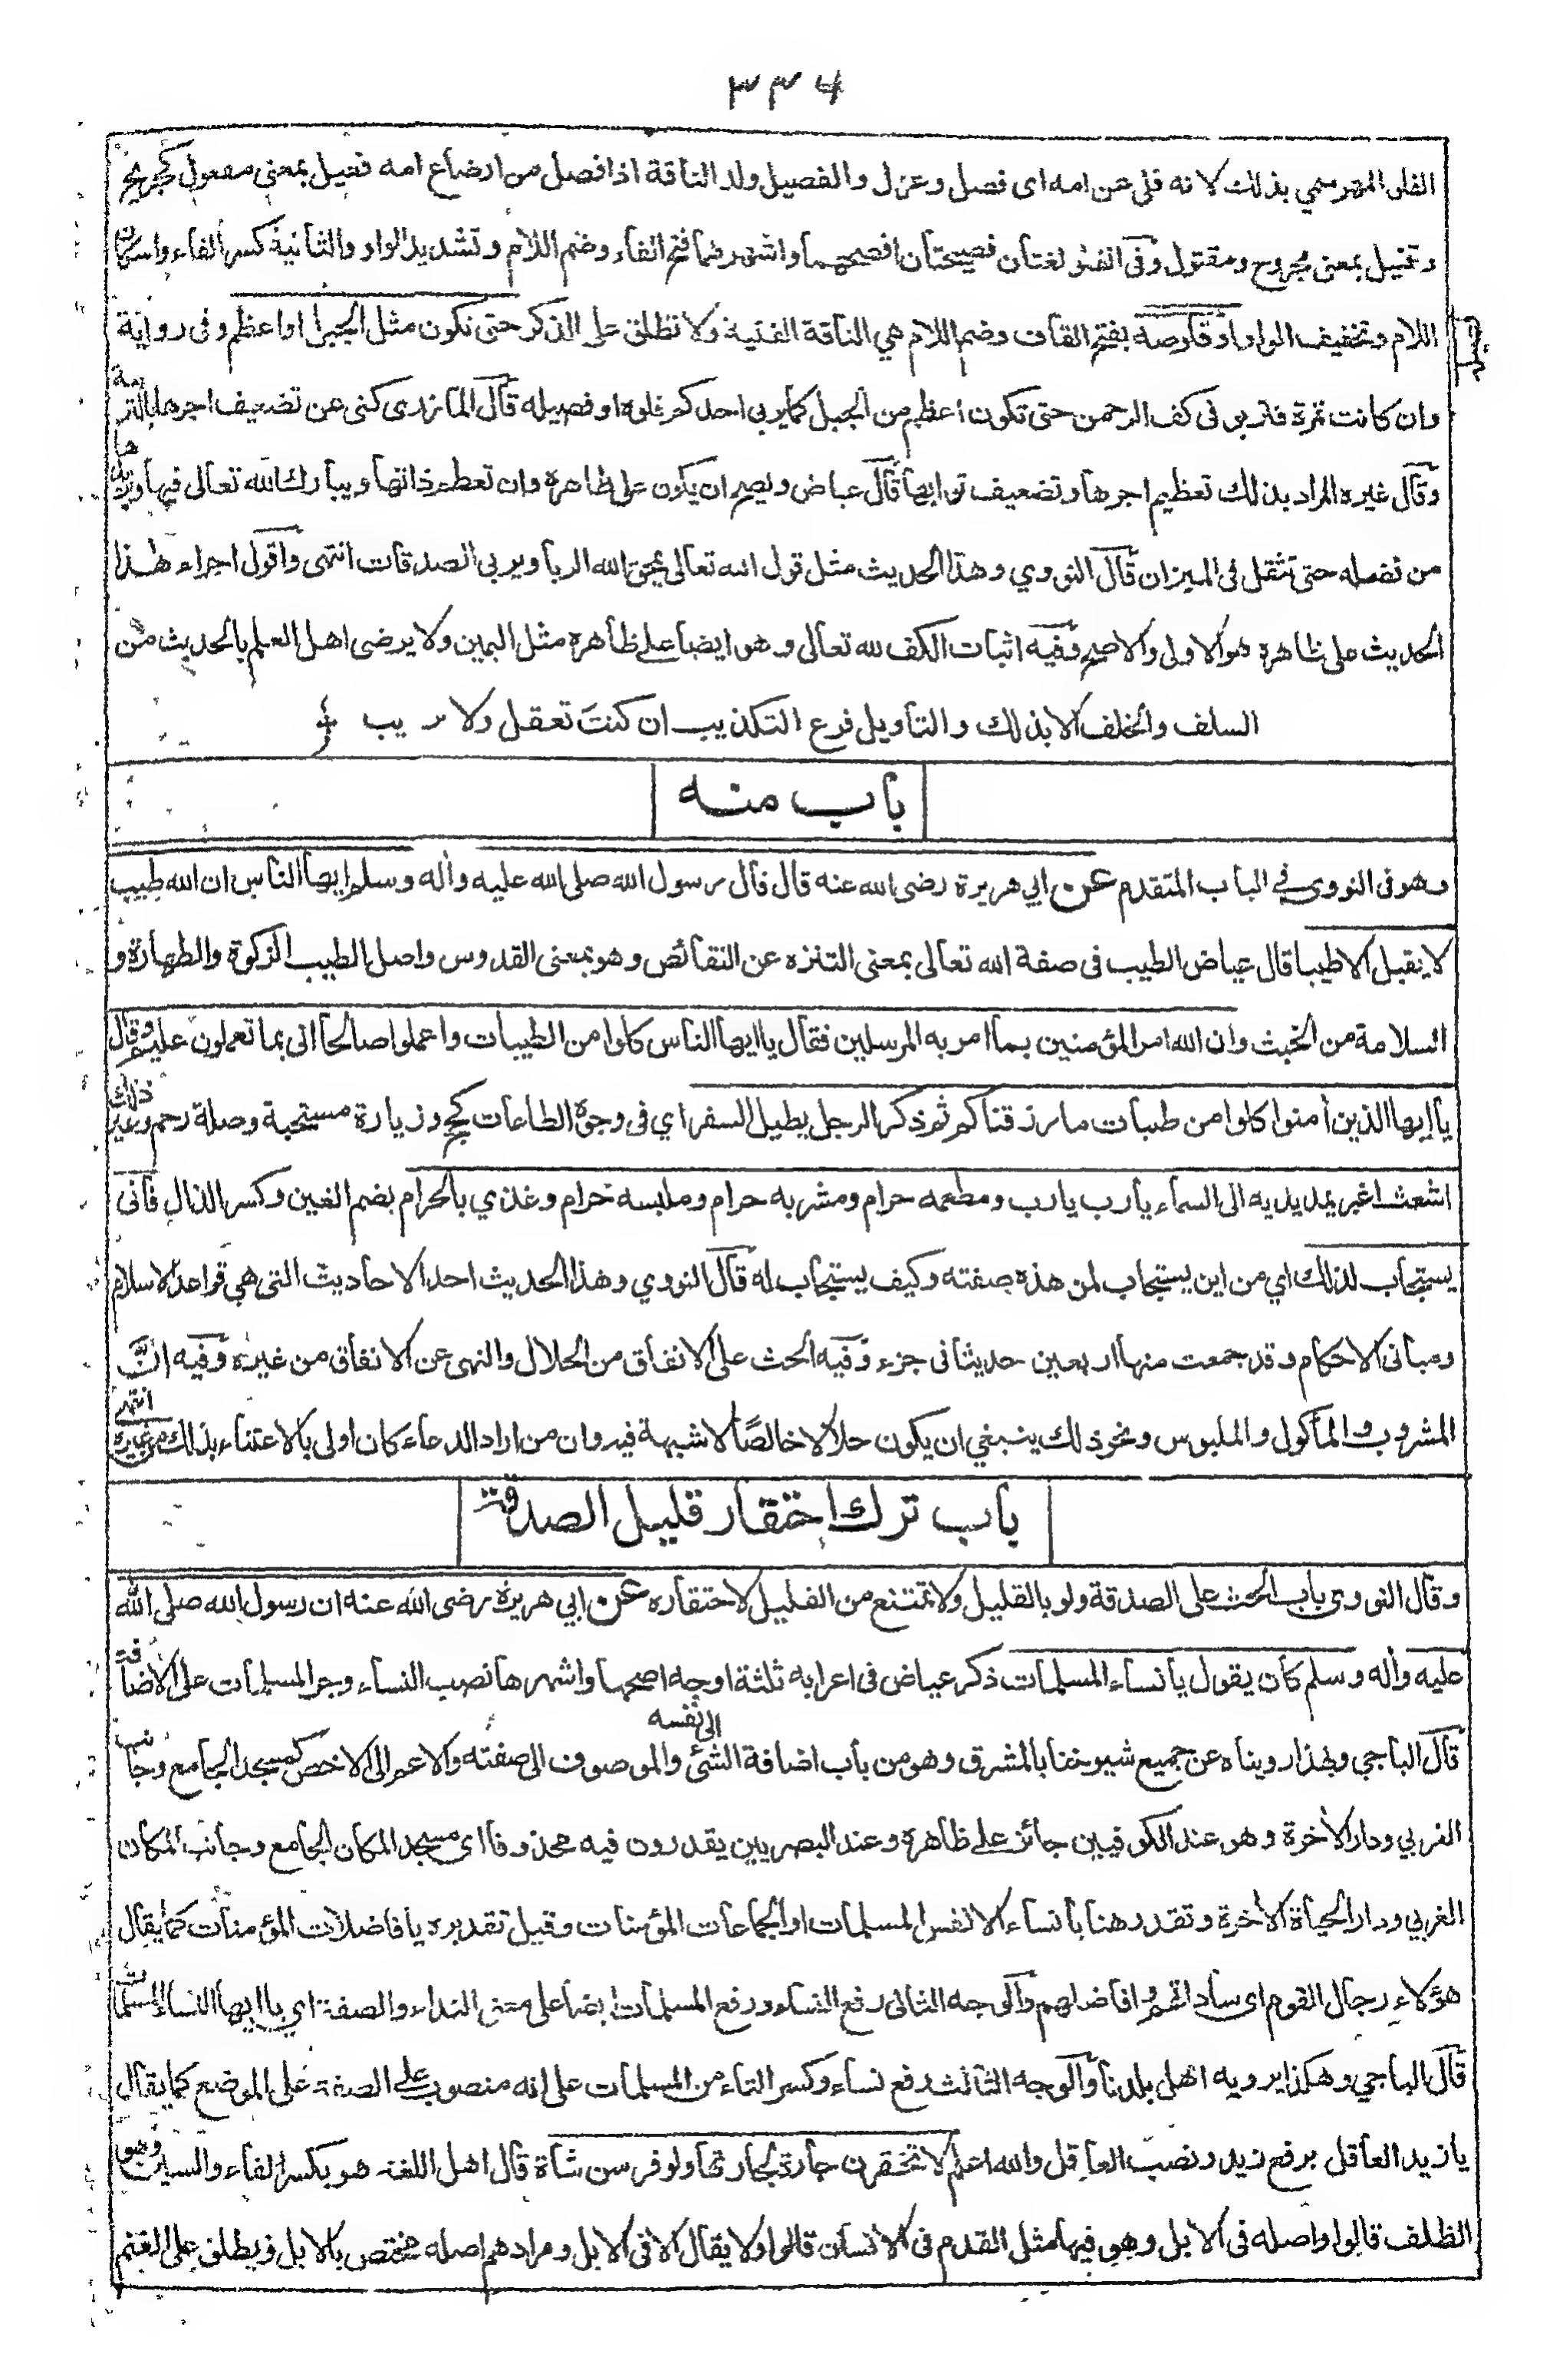 ٣٣٤
الفلو المهر سمي بذلك لانه فلى عن امه اى فصل وعزل والفصيل ولد الناقة اذا فصل من ارضاع امه فعيل بمعنى مفعول كجريح
وقتيل بمعنى مجروح ومقتول وفى الفلو لغتان فصيحتان افصحهما واشهرهما فتح الفاء وضم اللام وتشديد الواو والثانية كسر الفاء واسكان
اللام وتخفيف الواو او قلوصه بفتح القاف وضم اللام هي الناقة الفتية ولا تطلق على الذكر حتى تكون مثل الجبل او اعظم وفى رواية
وان كانت تمرة فتربو فى كف الرحمن حتى تكون اعظم من الجبل كما يربي احدكم فلوه او فصيله قال المازرى كنى عن تضعيف اجرها بالتربية
وقال غيره المراد بذلك تعظيم اجرها وتضعيف ثوابها قال عياض ويصح ان يكون على ظاهره وان تعظم ذاتها ويبارك الله تعالى فيها ويزيدها
من فضله حتى تثقل فى الميزان قال النووي وهذا الحديث مثل قول الله تعالى يمحق الله الربا ويربى الصدقات انتهى واقول اجراء هذا
الحديث على ظاهره هو الاولى والاصح وفيه اثبات الكف لله تعالى وهو ايضا على ظاهره مثل اليمين ولا يرضى اهل العلم بالحديث من
السلف والخلف الا بذلك والتاويل فرع التكذيب ان كنت تعقل ولا ريب
باب منه
وهو فى النووى في الباب المتقدم عن ابي هريرة رضى الله عنه قال قال رسول الله صلى الله عليه واله وسلم ايها الناس ان الله طيب
لا يقبل الا طيبا قال عياض الطيب فى صفة الله تعالى بمعنى التنزه عن النقائص وهو بمعنى القدوس واصل الطيب الزكوة والطهارة و
السلامة من الخبث وان الله امر المؤمنين بما امر به المرسلين فقال يا ايها الناس كلوا من الطيبات واعملوا صالحا انى بما تعملون عليم وقال
يا ايها الذين امنوا كلوا من طيبات ما رزقناكم ثم ذكر الرجل يطيل السفر اي فى وجوه الطاعات كحج وزيارة مستحبة وصلة رحم وغير ذلك
اشعث اغبر يمد يديه الى السماء يا رب يا رب ومطعمه حرام ومشربه حرام وملبسه حرام وغذي بالحرام بضم الغين وكسر الذال فانى
يستجاب لذلك اي من اين يستجاب لمن هذه صفته وكيف يستجاب له قال النووي وهذا الحديث احد الاحاديث التى هي قواعد الاسلام
ومبانى الاحكام وقد جمعت منها اربعين حديثا فى جزء وفيه الحث على الانفاق من الحلال والنهى عن الانفاق من غيره وفيه ان
المشروب والمأكول والملبوس ونحو ذلك ينبغي ان يكون حلالا خالصا لا شبهة فيه وان من اراد الدعاء كان اولى بالاعتناء بذلك من غيره انتهى
باب ترك احتقار قليل الصدقة
وقال النووى باب الحث على الصدقة ولو بالقليل ولا تمتنع من القليل لاحتقاره عن ابي هريرة رضى الله عنه ان رسول الله صلى الله
عليه واله وسلم كان يقول يا نساء المسلمات ذكر عياض فى اعرابه ثلثة اوجه اصحها واشهرها نصب النساء وجر المسلمات على الاضافة
قال الباجي وبهذا رويناه عن جميع شيوخنا بالمشرق وهو من باب اضافة الشئ الى نفسه والموصوف الى صفته والاعم الى الاخص كمسجد الجامع وجانب
الغربي ودار الاخرة وهو عند الكوفيين جائز على ظاهره وعند البصريين يقدرون فيه محذوفا اى مسجد المكان الجامع وجانب المكان
الغربي ودار الحياة الاخرة وتقدر هنا يا نساء الانفس المسلمات او الجماعات المؤمنات وقيل تقديره يا فاضلات المؤمنات كما يقال
هؤلاء رجال القوم اى ساداتهم وافاضلهم والوجه الثانى رفع النساء ورفع المسلمات ايضا على معنى النداء والصفة اي يا ايها النساء المسلمات
قال الباجي وهكذا يرويه اهل بلدنا والوجه الثالث رفع نساء وكسر التاء من المسلمات على انه منصوب على الصفة على الموضع كما يقال
يا زيد العاقل برفع زيد ونصب العاقل والله اعلم لا تحقرن جارة لجارتها ولو فرسن شاة قال اهل اللغة هو بكسر الفاء والسين وهو
الظلف قالوا واصله فى الابل وهو فيها مثل القدم فى الانسان قالوا ولا يقال الا فى الابل ومرادهم اصله مختص بالابل ويطلق على الغنم